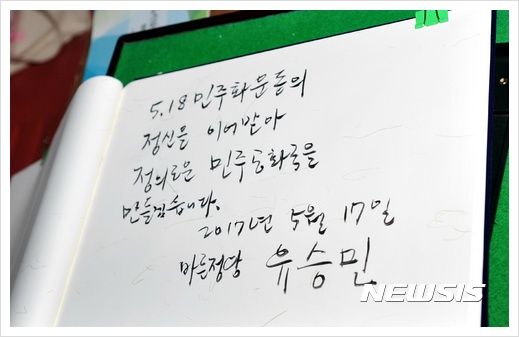 5.18 민주화운동의
정신을 이어받아
정의로운 민주공화국을
만들겠습니다.
2017년 5월 17일
바른정당 유승민
NEWSIS